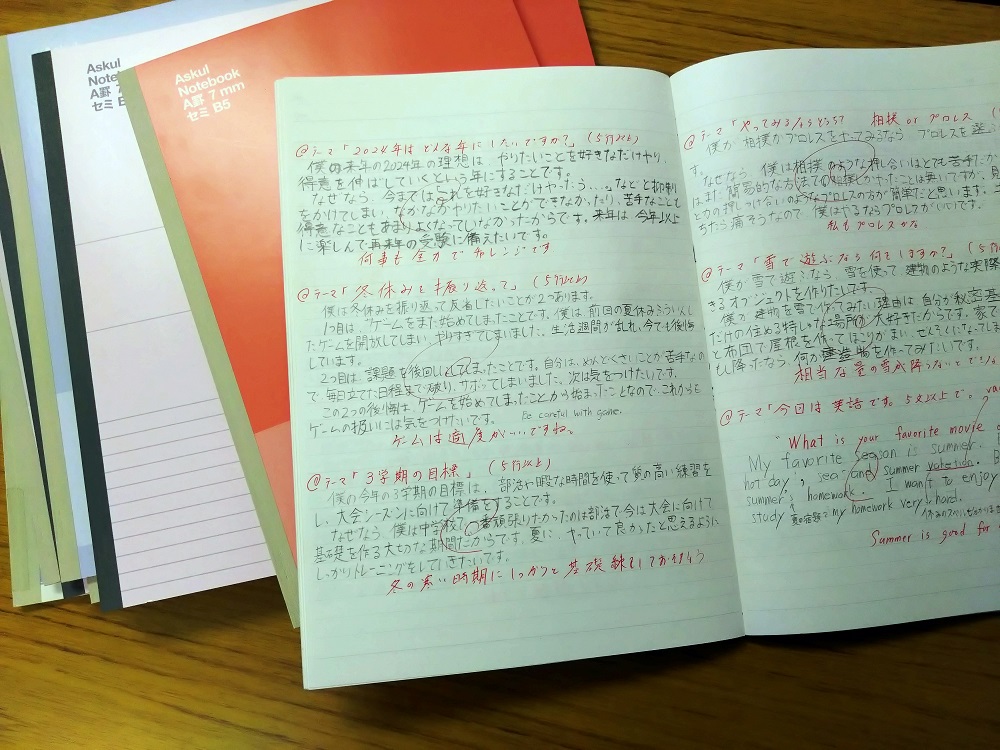 Askul
Notebook
A罫 7
セミ B
Askul
Notebook
A罫 7 mm
セミ B5
@テーマ「2024年は どんな年に したいですか?」(5行以上)
僕の来年の2024年の理想は、やりたいことを好きなだけやり、
得意を伸ばしていくという年にすることです。
なぜなら、今まではこれを好きなだけやったら...などと抑制
をかけてしまい、なかなかやりたいことができなかったり、苦手なことも
得意なこともあまりよくなっていなかったからです。来年は今年以上
に楽しんで再来年の受験に備えたいです。
何事も全力でチャレンジです
@テーマ「冬休みを振り返って」(5行以上)
僕は冬休みを振り返って反省したいことが2つあります。
1つ目は、ゲームをまた始めてしまったことです。僕は前回の夏休み
たゲームを開放してしまい、やりすぎてしまいました、生活週間が乱れ、今でも後悔
しています。
2つ目は、課題を後回しにしてしまったことです。自分は、めんどくさいことが苦手なの
で、毎日立てた日程まで破り、サボってしまいました、次は気をつけたいです。
この2つの後悔は、ゲームを始めてしまったことから始まったことなので、これからも
ゲームの扱いには気をつけたいです。 Be careful with game.
ゲームは適度がいいですね。
@テーマ「3学期の目標」(5行以上)
僕の今年の3学期の目標は、部活や暇な時間を使って質の高い練習を
し、大会シーズンに向けて準備をすることです。
なぜなら、僕は中学校で一番頑張りたかったのは部活で今は大会に向けて
基礎を作る大切な期間だからです。夏に、やっていて良かったと思えるように
しっかりトレーニングをしていきたいです。
冬の寒い時期にしっかりと基礎練しておきましょう
@テーマ「やってみるならどっち? 相撲 or プロレス (
僕が相撲かプロレスをやってみるなら プロレスを選
す。
なぜなら、僕は相撲のような押し合いはとても苦手だか
はまた、簡易的な方法での相撲しかやったことは無いですが、
とかの押しつけ合いのようなプロレスの方が簡単だと思います。
ちたら痛そうなので、僕はやるならプロレスがいいです。
私もプロレスかな
@テーマ「雪で遊ぶなら何をしますか?」(5
僕が雪で遊ぶなら、雪を使って建物のような実際
きるオブジェクトを作りたいです。
僕が建物を雪で作ってみたい理由は自分が秘密基
だけの住める特しゅな場所が大好きだからです。家で
と布団で屋根を作って
もし降ったなら、何か建造物を作ってみたいです。
相当な量の雪が降らないと
@テーマ「今回は英語です。5文以上で。
"What is your favorite movie
My favorite season is summer.
hot day, sea and summer vacation.
summer homework. I want to enjoy
study 夏の宿題 my homework very hard.
Summer is good for